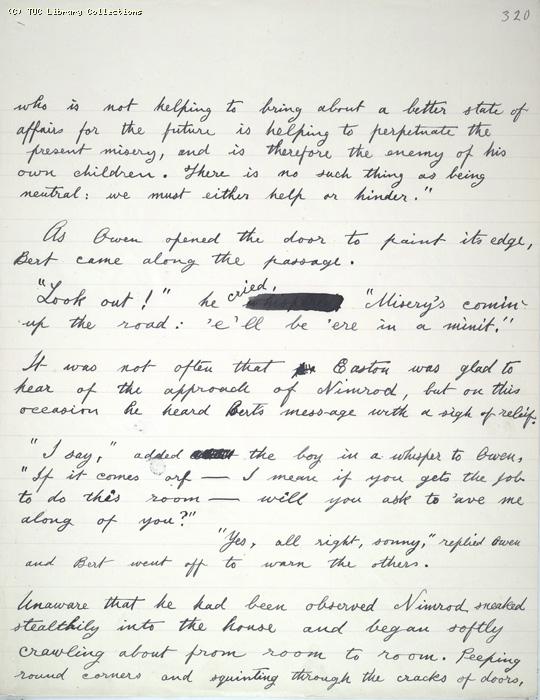 (C) TUC Library Collections
320
who is not helping to bring about a better state of
affairs for the future is helping to perpetuate the
present misery, and is therefore the enemy of his
own children. There is no such thing as being
neutral: we must either help or hinder."
As Owen opened the door to paint its edge,
Bert came along the passage.
"Look out!" he cried, "Misery's comin'
up the road: 'e'll be 'ere in a minit."
It was not often that Easton was glad to
hear of the approach of Nimrod, but on this
occasion he heard Berts message with a sigh of relief.
"I say," added the boy in a whisper to Owen,
"If it comes orf — I mean if you gets the job
to do this room — will you ask to 'ave me
along of you?"
"Yes, all right, sonny," replied Owen
and Bert went off to warn the others.
Unaware that he had been observed Nimrod sneaked
stealthily into the house and began softly
crawling about from room to room. Peeping
round corners and squinting through the cracks of doors,